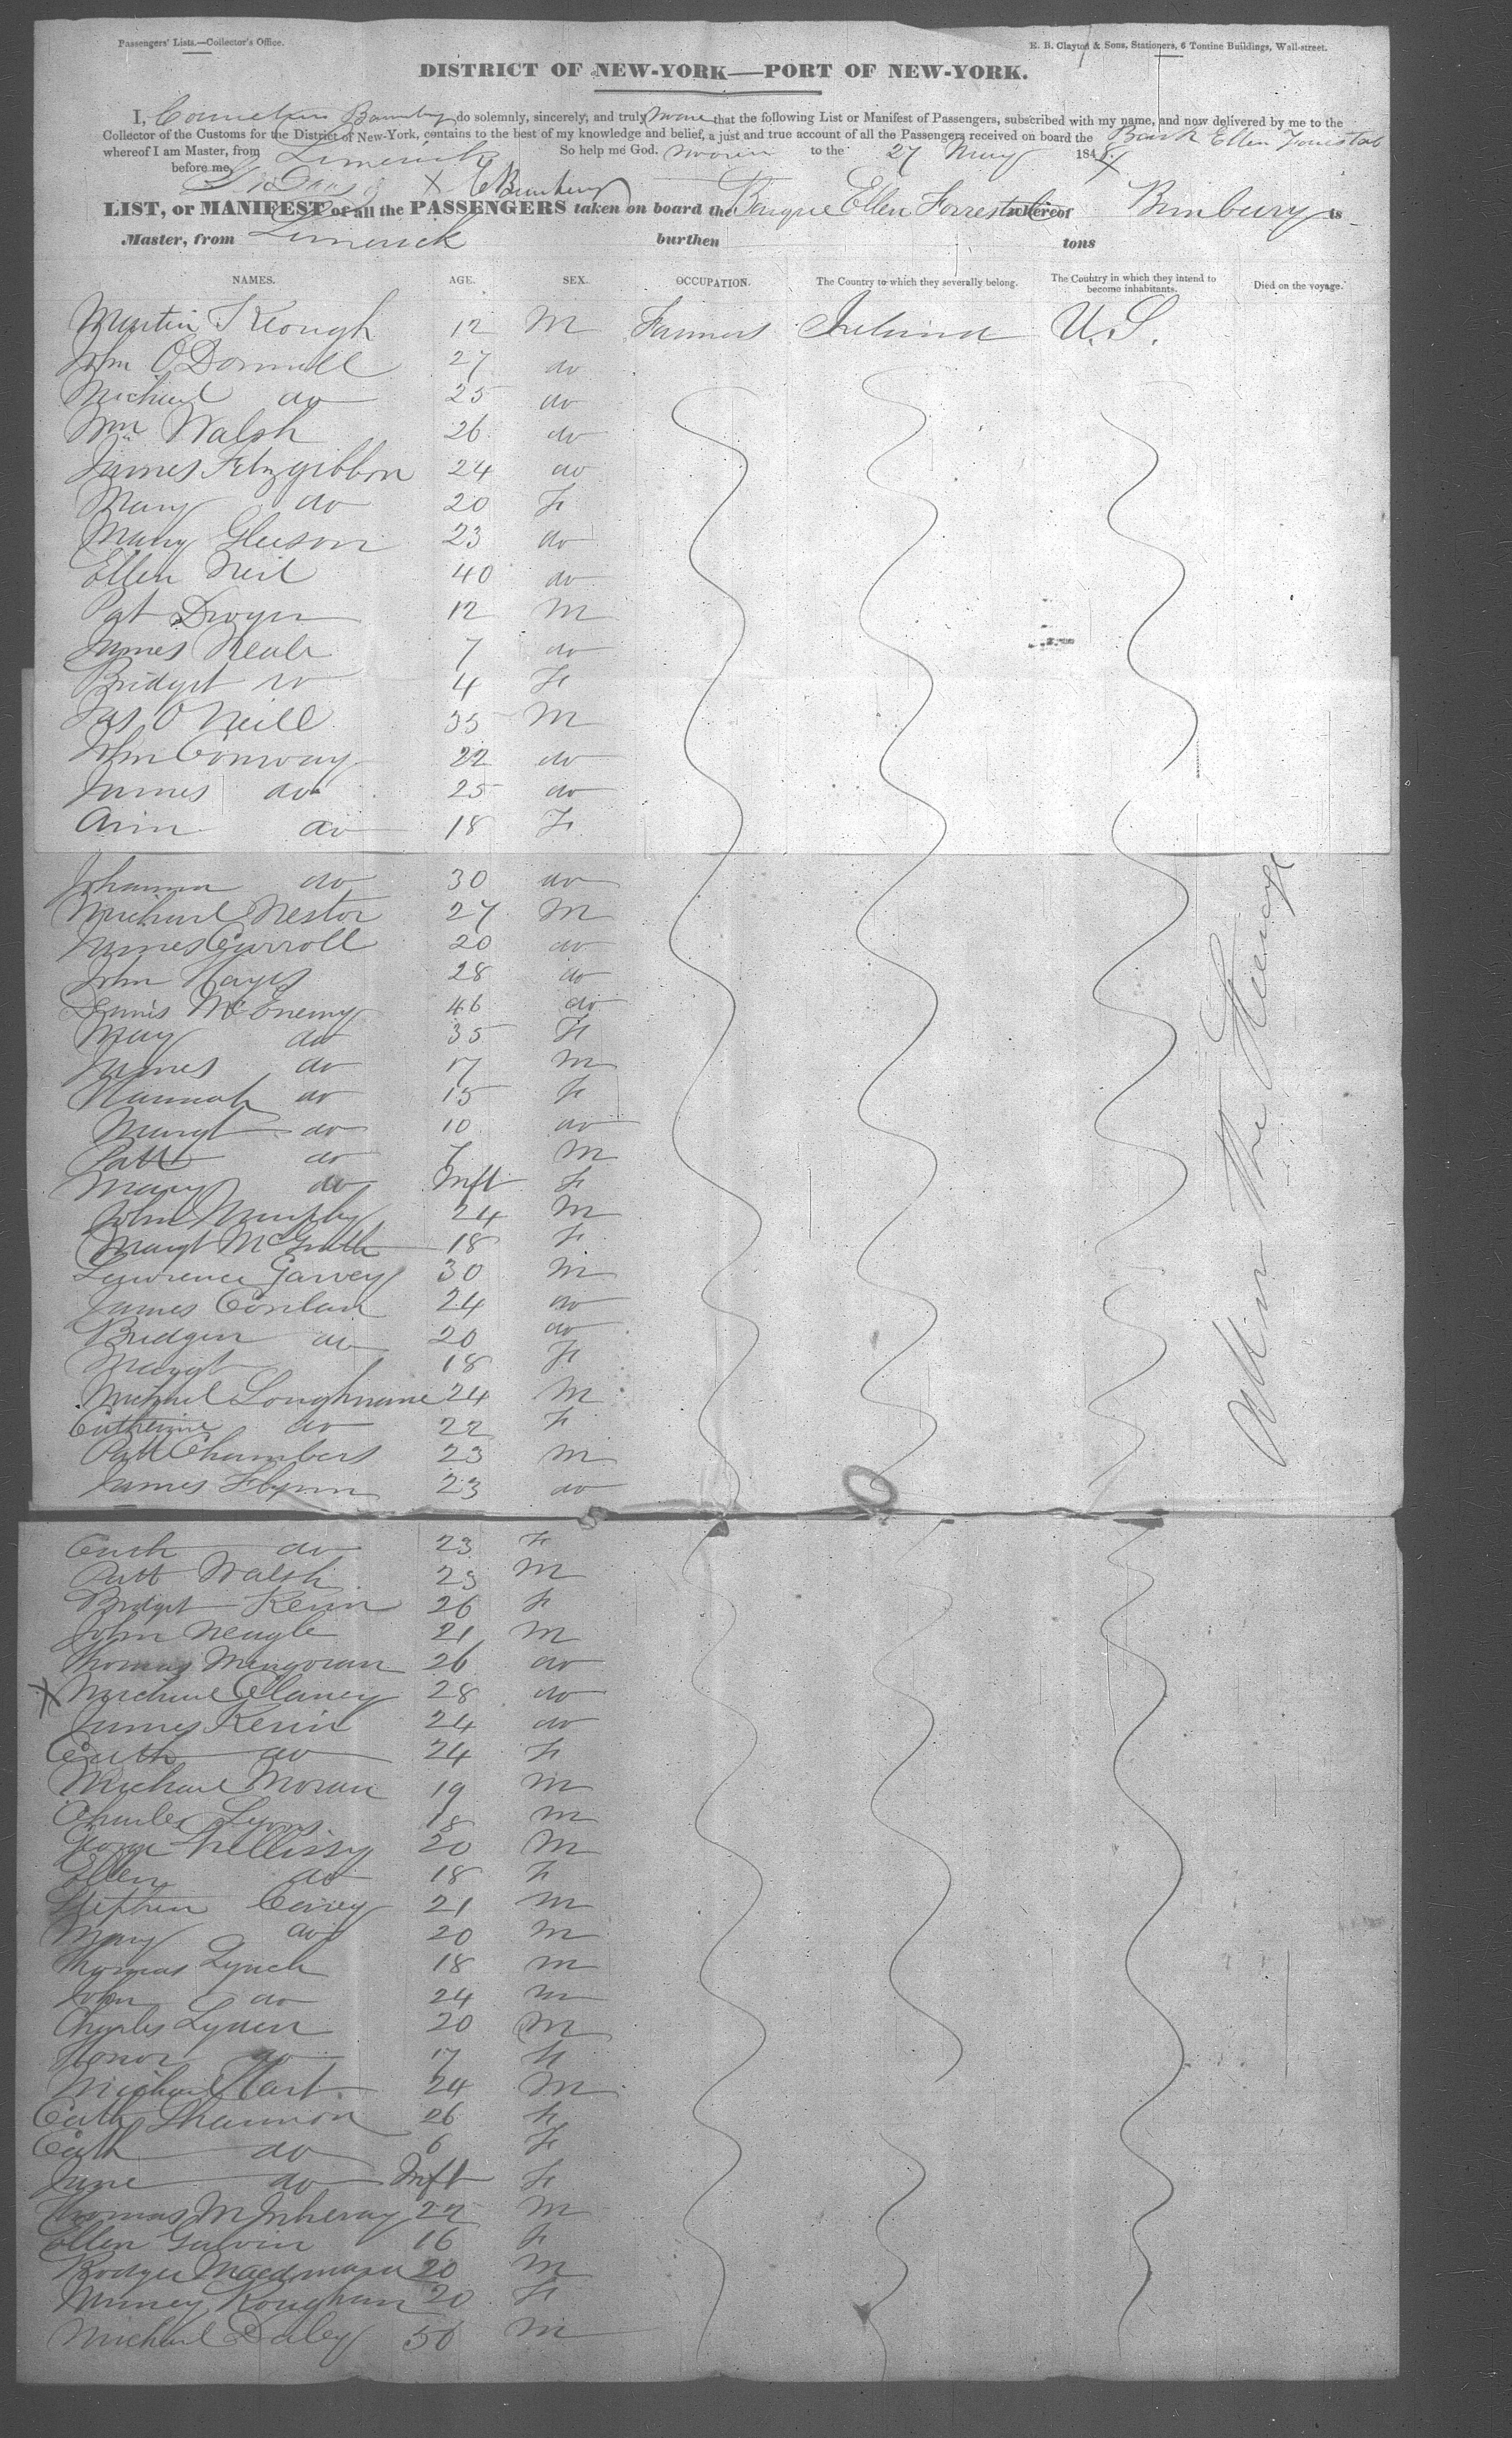 Passengers' Lists.—Collector's Office.
E. B. Clayton & Sons, Stationers, 6 Tontine Buildings, Wall-street.
DISTRICT OF NEW-YORK—PORT OF NEW-YORK.
I, do solemnly, sincerely, and truly that the following List or Manifest of Passengers, subscribed with my name, and now delivered by me to the
Collector of the Customs for the District of New-York, contains to the best of my knowledge and belief, a just and true account of all the Passengers received on board the Bark Ellen
whereof I am Master, from Limerick So help me God. to the 27 May 184
before me
LIST, or MANIFEST of all the PASSENGERS taken on board the Barque Ellen Forrestal whereof Bunbury is
Master, from Limerick burthen tons
NAMES. AGE. SEX. OCCUPATION. The Country to which they severally belong. The Country in which they intend to become inhabitants. Died on the voyage.
Martin Keough 12 M Farmers Ireland U.S.
John O'Donnell 27 do
Michael do 25 do
Wm Walsh 26 do
James Fitzgibbon 24 do
Mary do 20 F
Mary Gleeson 23 do
Ellen Neil 40 do
Pat Dwyer 12 M
James Neale 7 do
Bridget do 4 F
Jas O'Neill 35 M
John Conway 22 do
James do 25 do
Ann do 18 F
Johanna do 30 do
Michael Nestor 27 M
James Carroll 20 do
John Hayes 28 do
Dennis McEnemy 46 do
May do 35 F
James do 17 M
Hannah do 15 F
Margt do 10 do
Patt do 7 M
Mary do Inft F
John Murphy 24 M
Margt McGrath 18 F
Lawrence Garvey 30 M
James Conlan 24 do
do 20 do
Margt 18 F
Michael Loughnane 24 M
Catherine do 22 F
Patt Chambers 23 M
James Flynn 23 do
Cath do 23 F
Patt Walsh 23 M
Bridget Kerin 26 F
John Neagle 21 M
Thomas 26 do
X Michael Clancy 28 do
James Kerin 24 do
Cath do 24 F
Michael Moran 19 M
Charles Lyons 18 M
George 20 M
Ellen do 18 F
Stephen Carey 21 M
Mary do 20 M
Thomas Lynch 18 M
John do 24 M
Charles Lynch 20 M
Honor do 17 F
Michael Hart 24 M
Cath Shannon 26 F
Cath do 6 F
Jane do Inft F
Thomas 22 M
Ellen Galvin 16 F
Rodger 20 M
20 F
Michael Daley 50 M
All in the Steerage